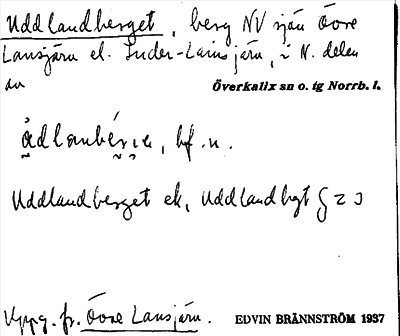 Uddlandberget, berg NV sjön Övre
Lansjärv el. Inder-Lansjärv, i N. delen
av Överkalix sn o. tg Norrb. l.
ådlambérıe, bf. n.
Uddlandberget ek, Uddlandbgt
Uppg. fr. Övre Lansjärv. EDVIN BRÄNNSTRÖM 1937